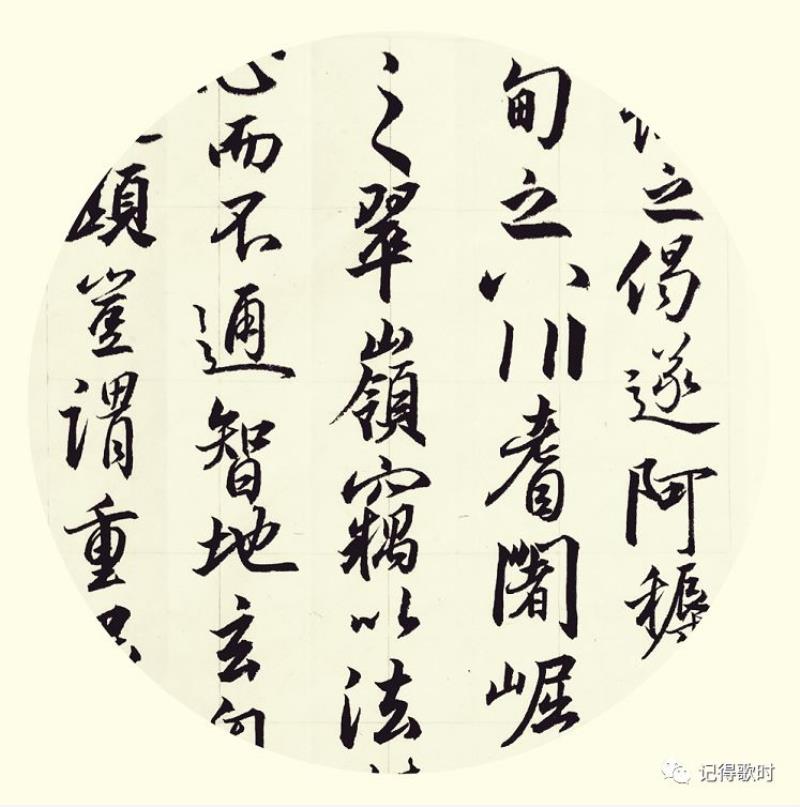 之偈遂阿耨
甸之八川耆闍崛
之翠嶺竊以法
心而不通智地玄
顯豈謂重
记得歌时